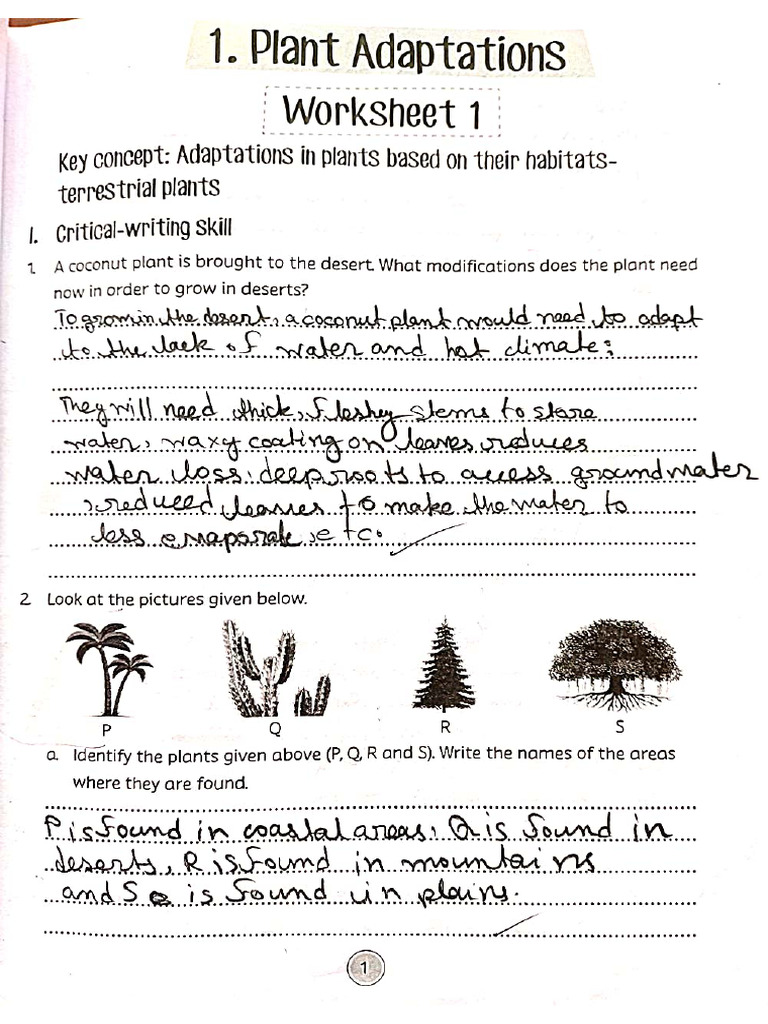 1. Plant Adaptations
Worksheet 1
Key concept: Adaptations in plants based on their habitats-
terrestrial plants
I. Critical-writing skill
1. A coconut plant is brought to the desert. What modifications does the plant need
now in order to grow in deserts?
To grow in the desert, a coconut plant would need to adapt
to the lack of water and hot climate:
They will need thick, fleshey stems to store
water, waxy coating on leaves reduces
water loss, deep roots to access groundwater
, reduced leaves to make the water to
less evaparate, etc.
2. Look at the pictures given below.
P Q R S
a. Identify the plants given above (P, Q, R and S). Write the names of the areas
where they are found.
P is found in coastal areas, Q is found in
deserts, R is found in mountains
and S is found in plains.
1